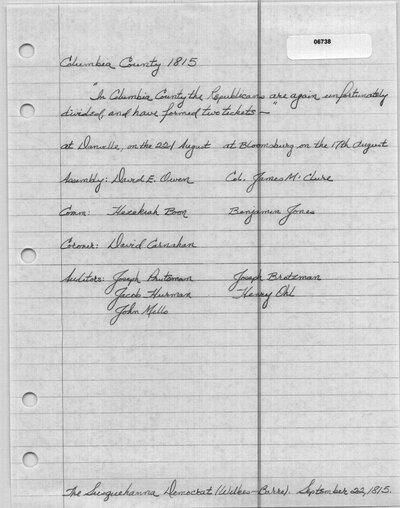 06738
Columbia County 1815
"In Columbia County the Republicans are again unfortunately
divided, and have formed two tickets—"
at Danville, on the 22d August at Bloomsburg on the 17th August
Assembly: David E. Owen Col. James McClure
Comm: Hezekiah Boon Benjamin Jones
Coroner: David Carnahan
Auditors: Joseph Prutzman Joseph Brotzman
Jacob Hurman Henry Ohl
John Mills
The Susquehanna Democrat (Wilkes-Barre). September 22, 1815.